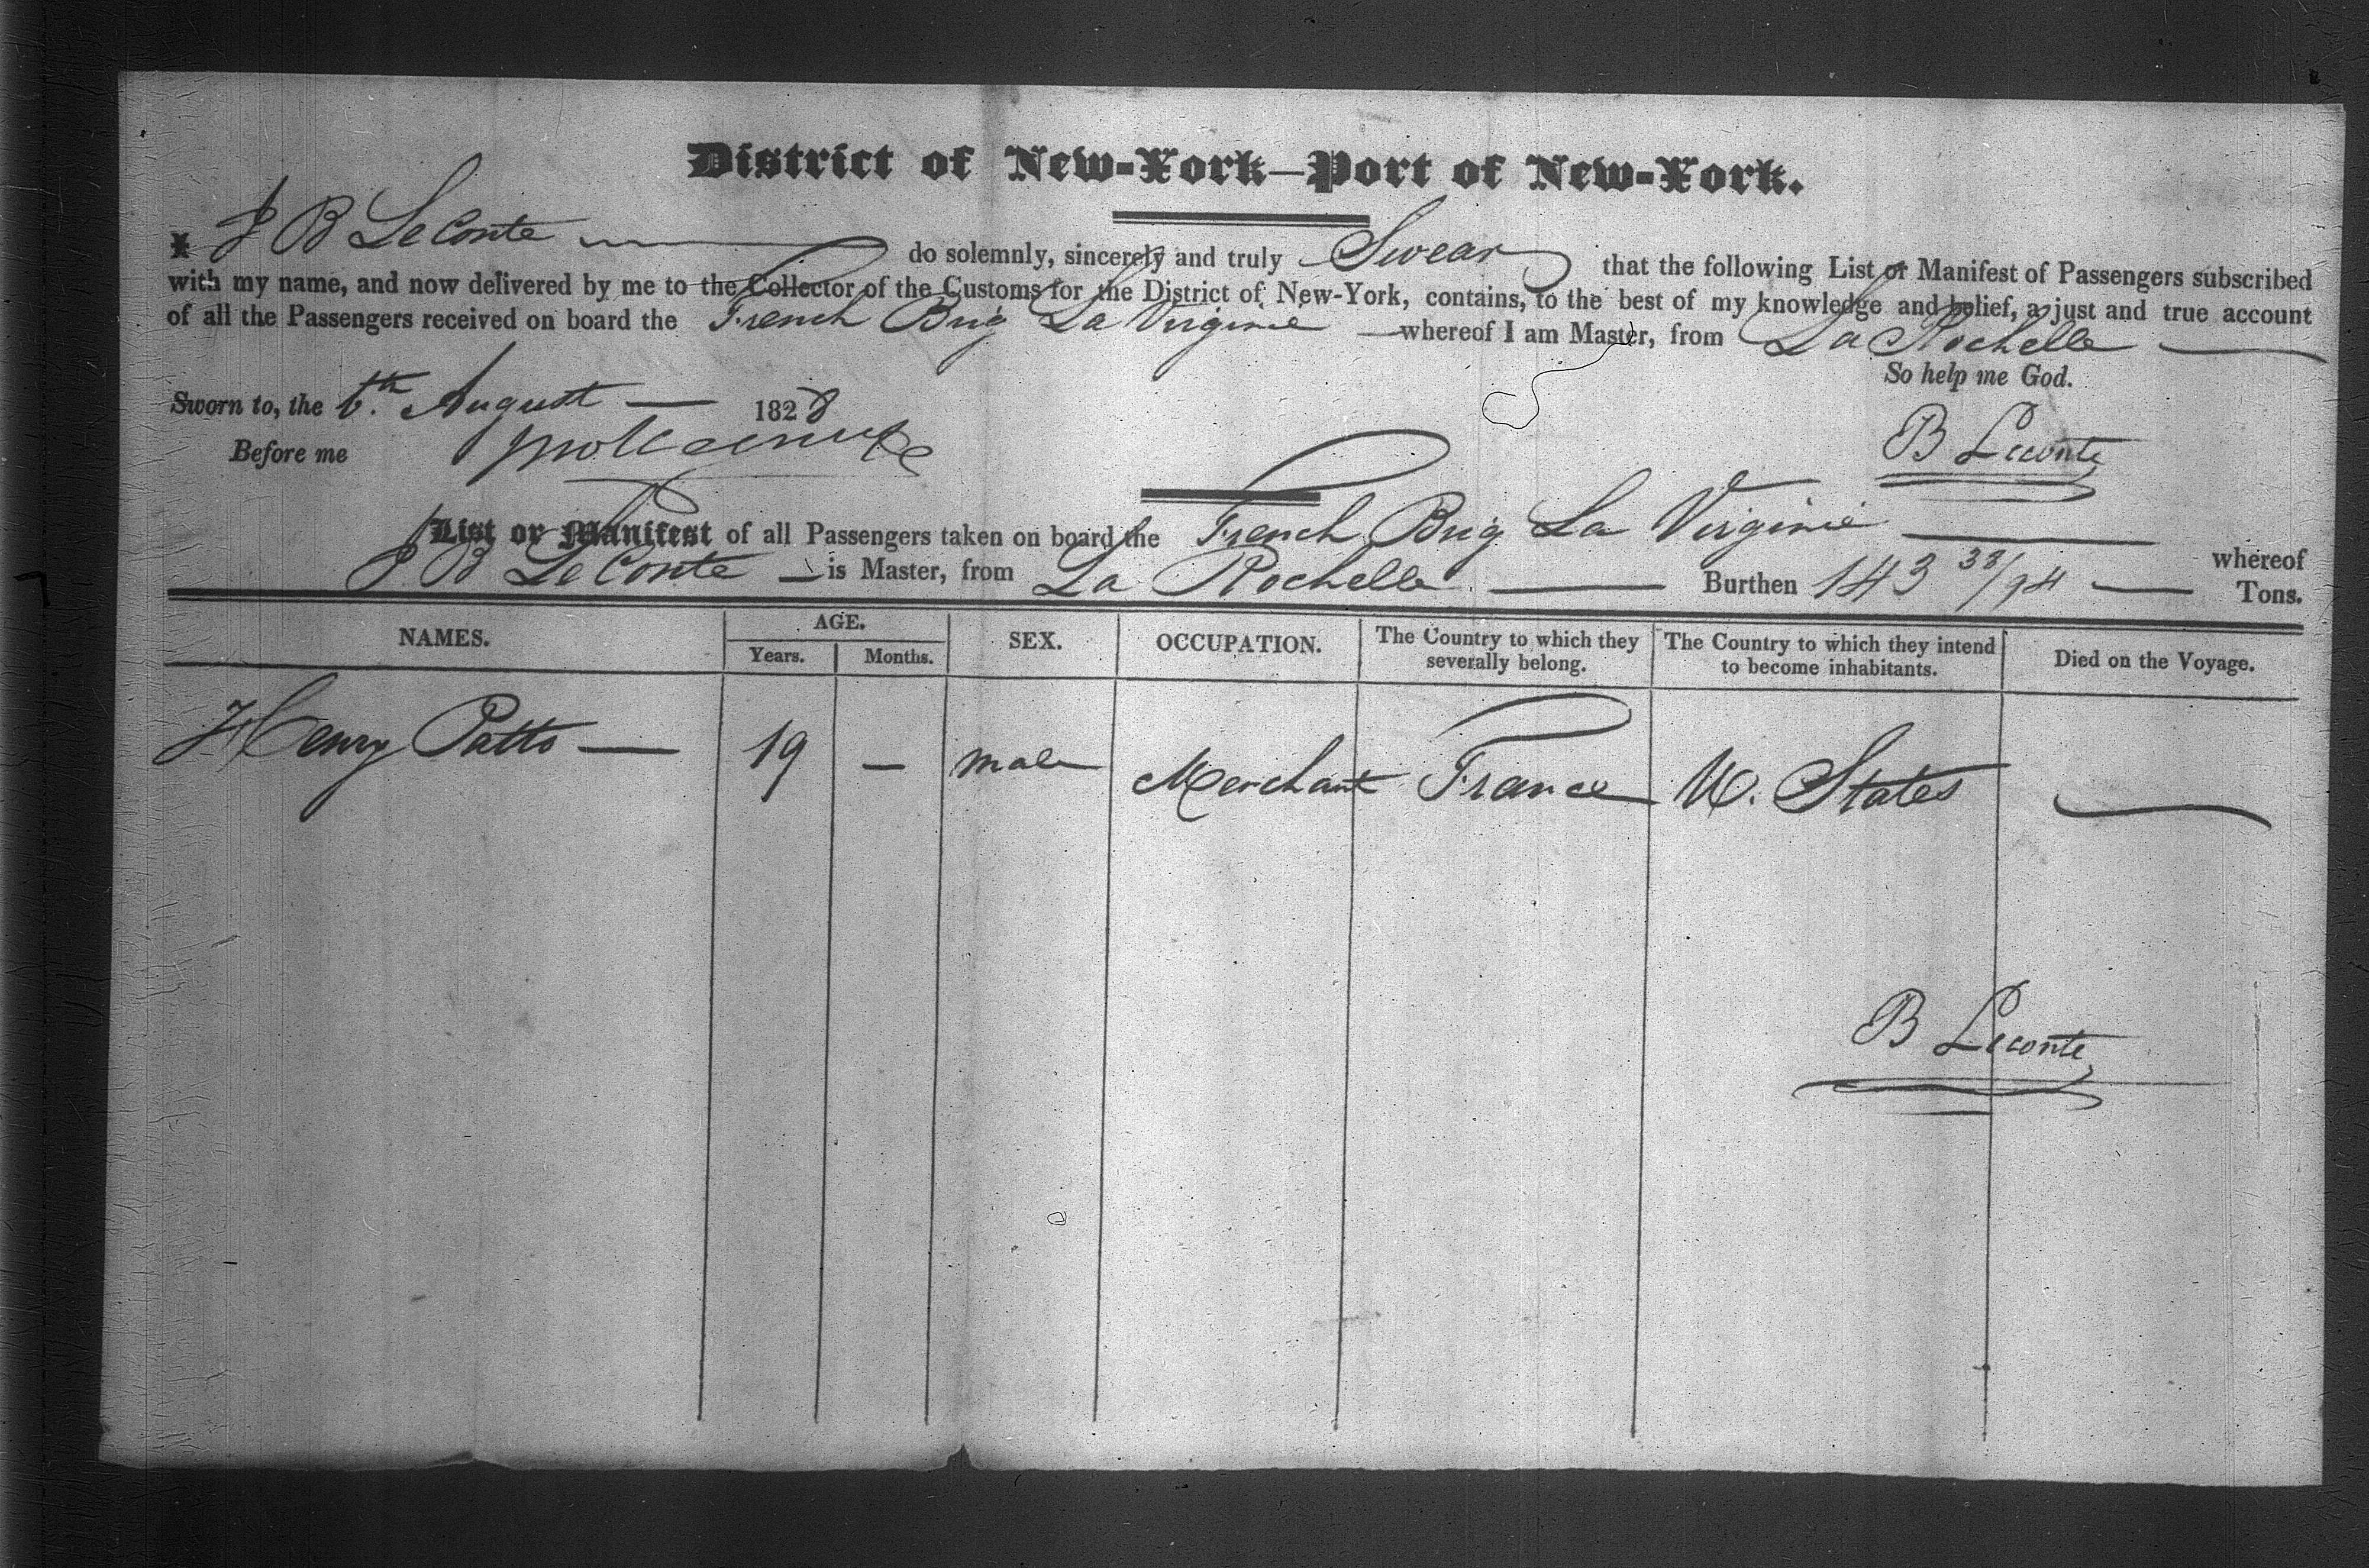 District of New-York—Port of New-York.
I J B LeConte do solemnly, sincerely and truly Swear that the following List or Manifest of Passengers subscribed
with my name, and now delivered by me to the Collector of the Customs for the District of New-York, contains, to the best of my knowledge and belief, a just and true account
of all the Passengers received on board the French Brig La Virginie whereof I am Master, from La Rochelle
So help me God.
Sworn to, the 6th. August — 1828
B Leconte
Before me
List or Manifest of all Passengers taken on board the French Brig La Virginie — whereof
J B LeConte — is Master, from La Rochelle — Burthen 143 38/94 — Tons.
NAMES. AGE. SEX. OCCUPATION. The Country to which they severally belong. The Country to which they intend to become inhabitants. Died on the Voyage.
Years. Months.
Henry Patts — 19 — male Merchant France U. States —
B Leconte